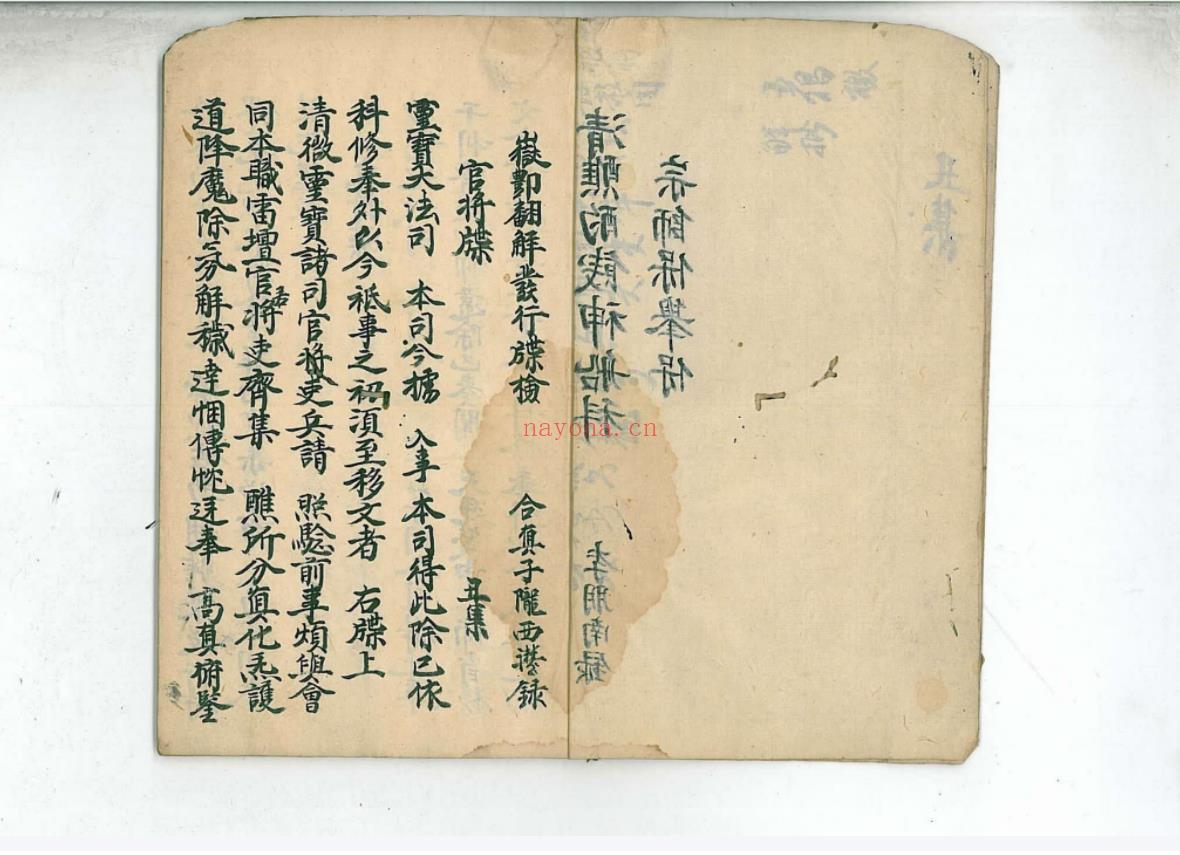 丑集
宗師保舉保
清醮酌餞神船科 李朋南録
嶽酆翻解發行牒檢 合真子隴西 録
官將牒 丑集
靈寶大法司 本司今據 入事本司得此除已依
科修奉外以今祗事之初須至移文者 右牒上
清微靈寶諸司官將吏兵請 照驗前事煩與會
同本職雷壇官將吏齊集 醮所分真化炁護
道降魔除氛解穢達悃傳忱逕奉 高真俯鑒
nayona.cn